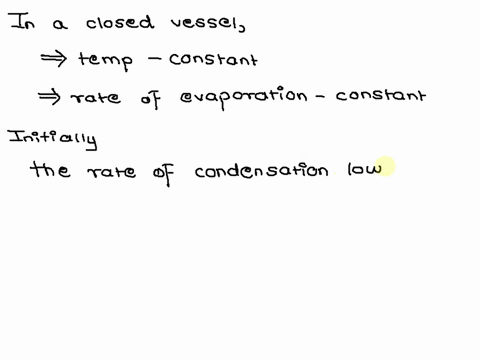 In a closed vessel,
⇒ temp - constant
⇒ rate of evaporation - constant
Initially
the rate of condensation low